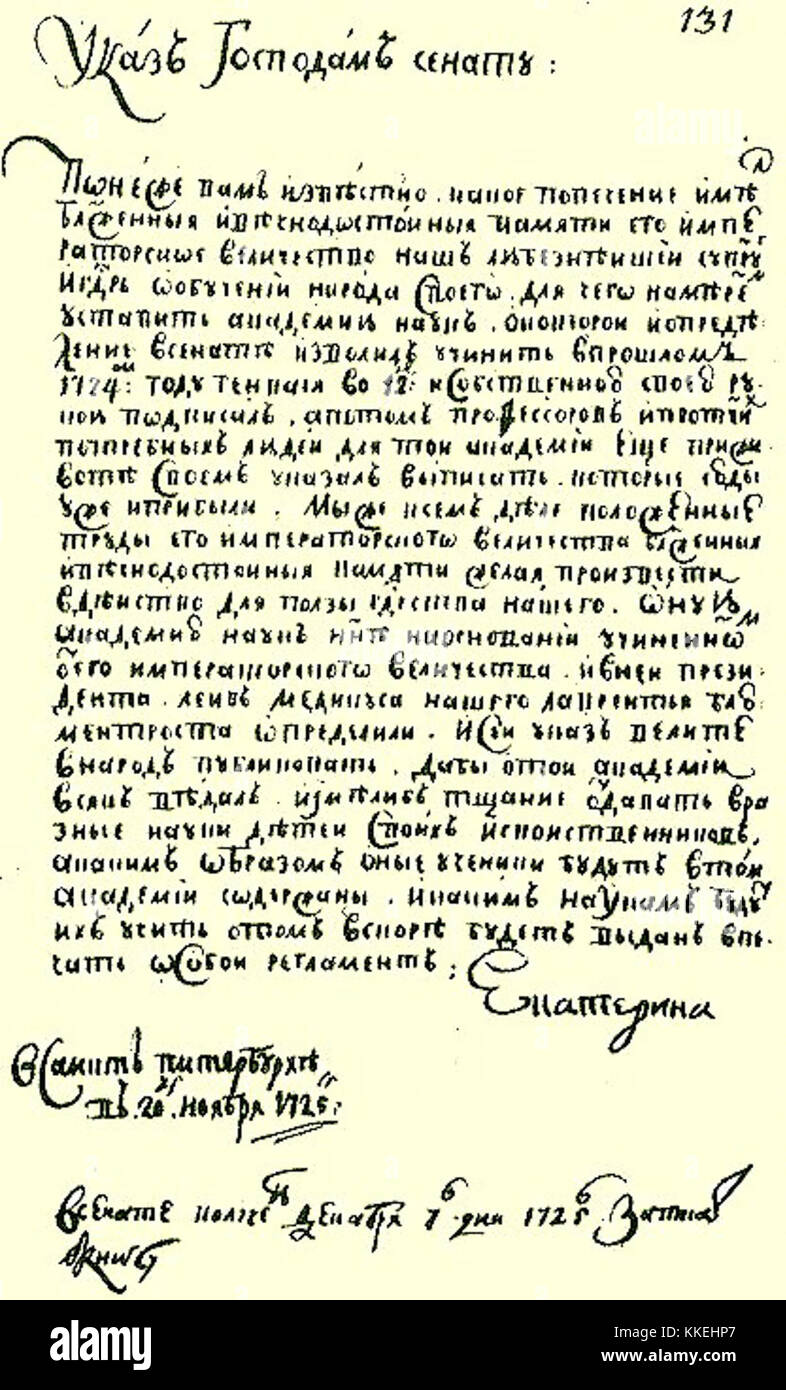 131
Указъ Господамъ сенату:
Понеже вамъ извѣстно. какое попечение имѣлъ
блаженныя ивѣчнодостойныя памяти его импе
раторское величество нашъ любезнѣишии супру
Игдрь ообучениї народа своего. для чего намѣренъ
уставить академию наукъ. окоторои иопредѣ
ление всенатѣ изволилъ учинить впрошломъ
1724ом: году генваря во 12: исобственною своею ру
кою подписалъ. апотомъ профессоровъ ипротчихъ
потребныхъ людеи для тои академиї еще прижи
вотѣ своемъ указалъ выписать. которые сюды
уже иприбыли. Мыже всемъ дѣле положенные
труды его императорского величества блаженныя
ивѣчнодостоиныя памяти желая произвести
вдѣиство для ползы отечества нашего. Ону
академию наукъ нне наоснованиї учиненном
отего императорского величества. ивнеи прези
дента. леиб медикуса нашего лаврентья блю
ментроста определили. Исеи указъ велите
внародъ публиковать. Дабы отои академиї
всякъ вѣдалъ. иимѣлибъ тщание отдавать вра
зные науки дѣтеи своихъ исвоиственниковъ.
акакимъ образомъ оные ученики будутъ втои
академиї содержаны. икакимъ наукамъ будутъ
ихъ учить отомъ вскорѣ будетъ выданъ впе
чать особои регламентъ:
Екатерина
Всанктъ питербурхѣ
въ. 20г. ноября 1725г:
Всенате получен декабря 7г дня 1725г Записав
вкнигу
alamy
Image ID: KKEHP7
www.alamy.com